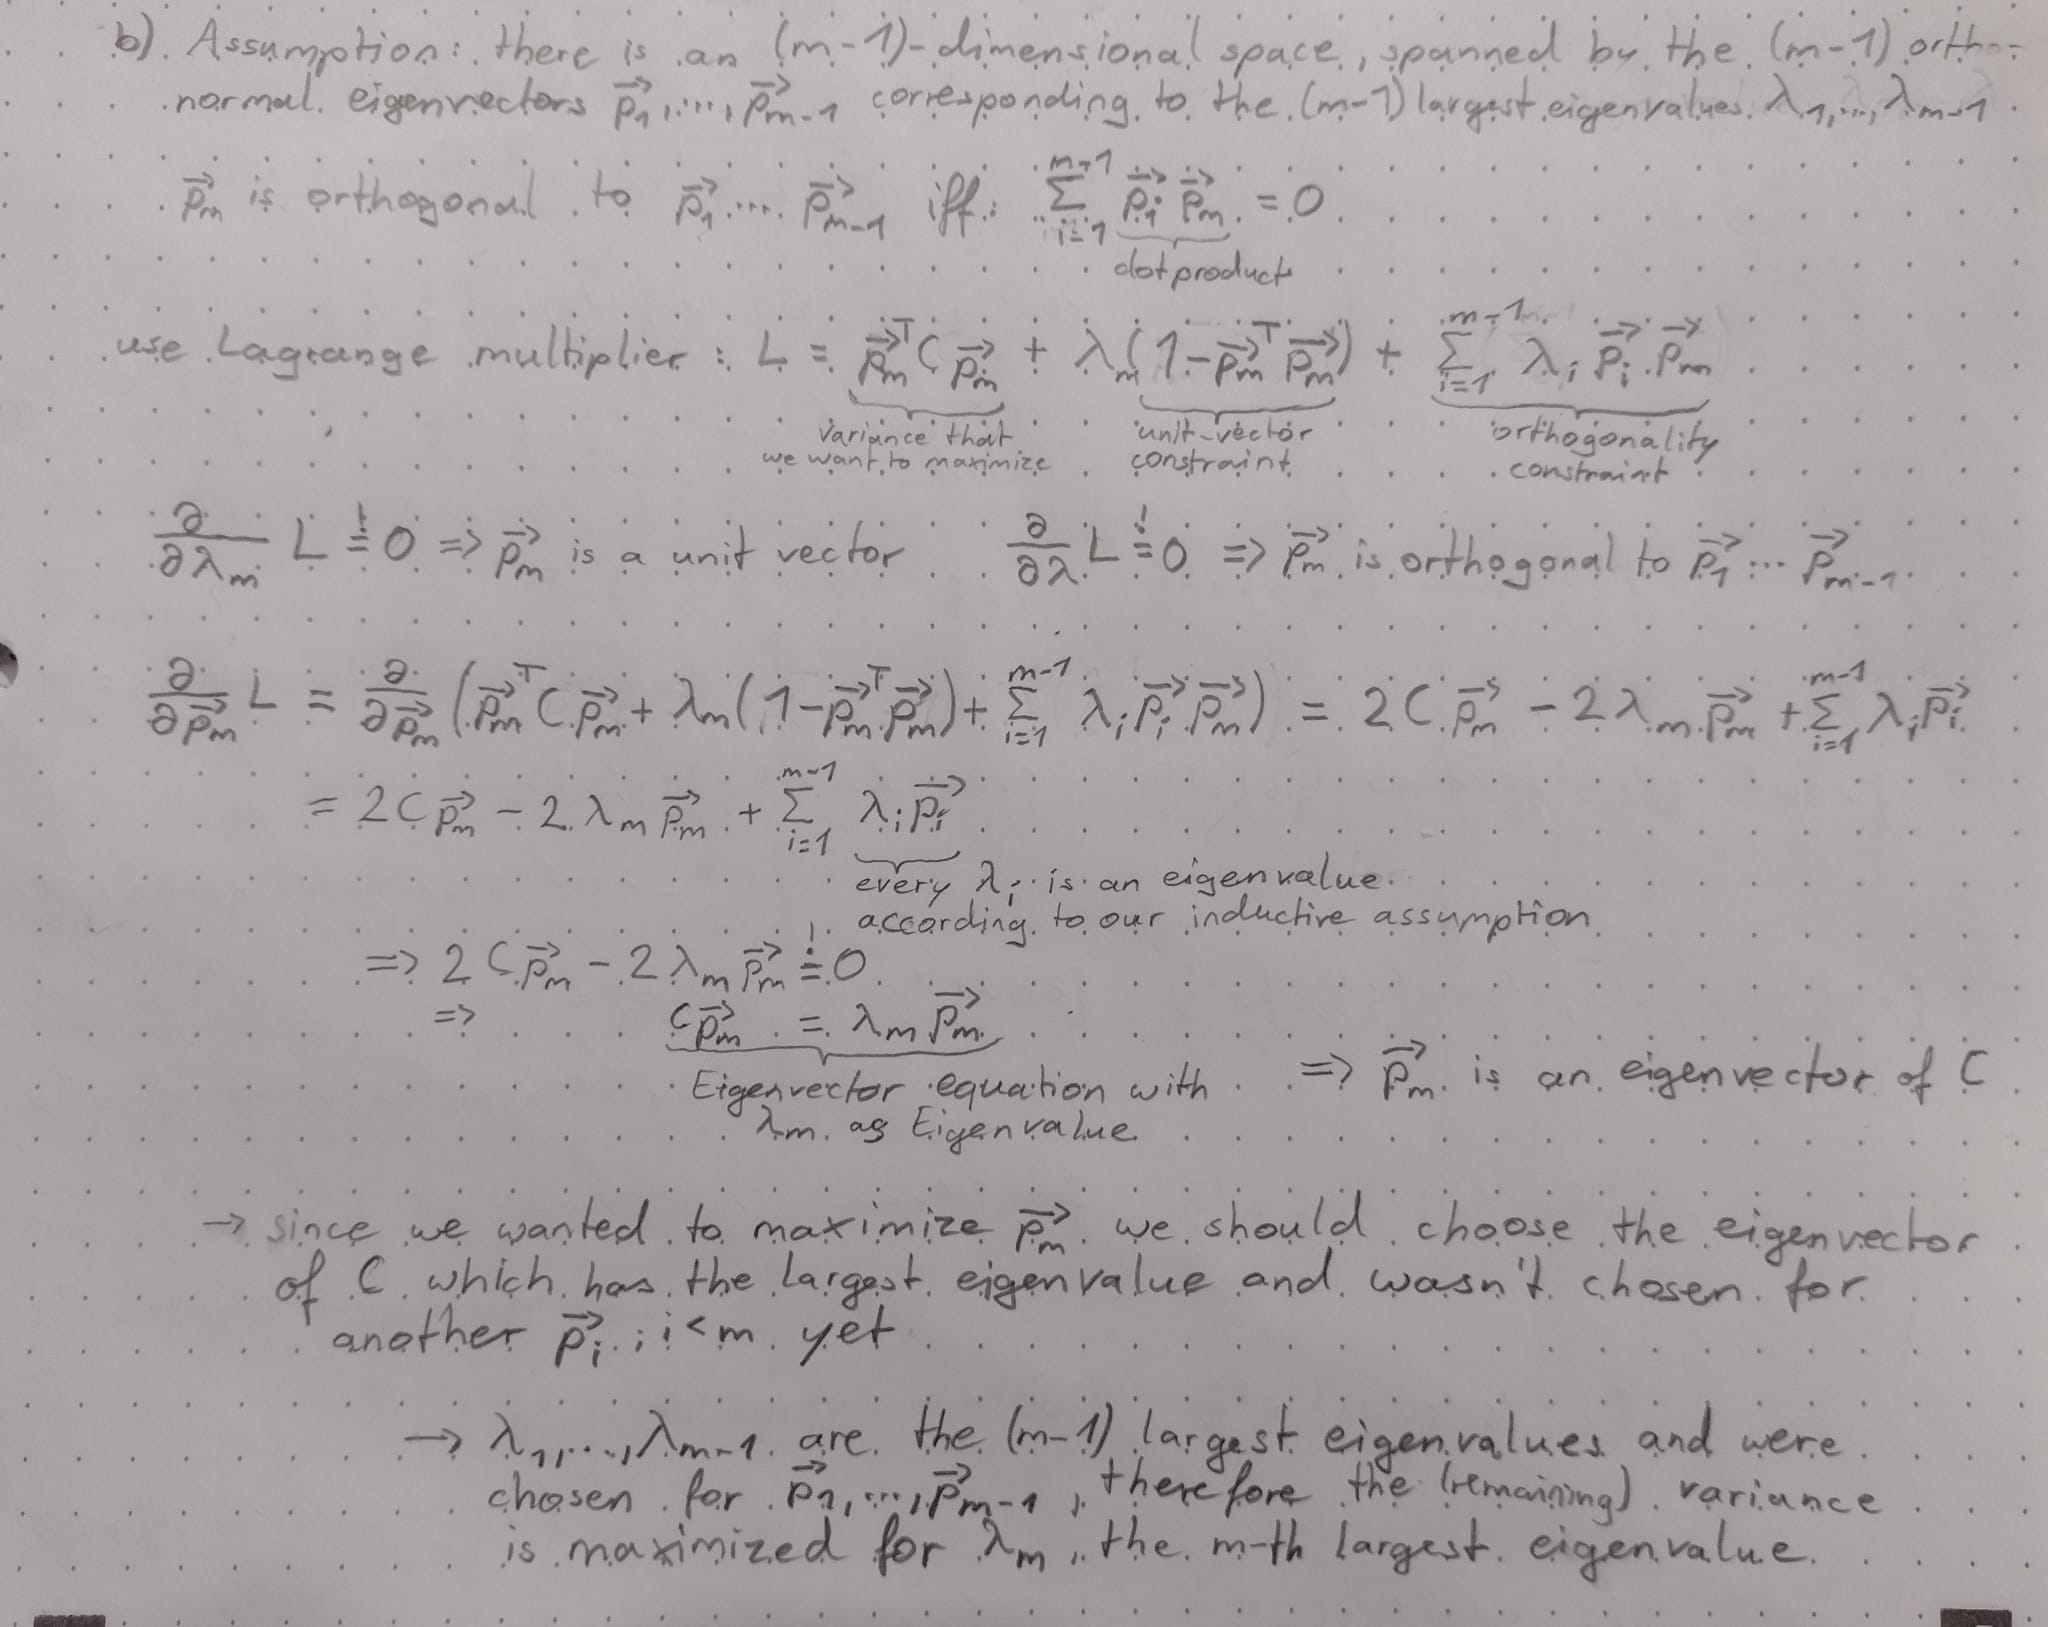 b) Assumption: there is an (m-1)-dimensional space, spanned by the (m-1) ortho-
normal eigenvectors p⃗₁,...,p⃗ₘ₋₁ corresponding to the (m-1) largest eigenvalues λ₁,...,λₘ₋₁
p⃗ₘ is orthogonal to p⃗₁ ... p⃗ₘ₋₁ iff: Σᵢ₌₁^(m-1) p⃗ᵢ p⃗ₘ = 0
dotproduct
use Lagrange multiplier: L = p⃗ₘᵀ C p⃗ₘ + λₘ(1 - p⃗ₘᵀ p⃗ₘ) + Σᵢ₌₁^(m-1) λᵢ p⃗ᵢ p⃗ₘ
variance that unit-vector orthogonality
we want to maximize constraint constraint
∂/∂λₘ L =! 0 => p⃗ₘ is a unit vector ∂/∂λ L =! 0 => p⃗ₘ is orthogonal to p⃗₁ ... p⃗ₘ₋₁
∂/∂p⃗ₘ L = ∂/∂p⃗ₘ (p⃗ₘᵀ C p⃗ₘ + λₘ(1 - p⃗ₘᵀ p⃗ₘ) + Σᵢ₌₁^(m-1) λᵢ p⃗ᵢ p⃗ₘ) = 2 C p⃗ₘ - 2 λₘ p⃗ₘ + Σᵢ₌₁^(m-1) λᵢ p⃗ᵢ
= 2 C p⃗ₘ - 2 λₘ p⃗ₘ + Σᵢ₌₁^(m-1) λᵢ p⃗ᵢ
every λᵢ is an eigenvalue
according to our inductive assumption
=> 2 C p⃗ₘ - 2 λₘ p⃗ₘ =! 0
=> C p⃗ₘ = λₘ p⃗ₘ
Eigenvector equation with => p⃗ₘ is an eigenvector of C
λₘ as Eigenvalue
→ since we wanted to maximize p⃗ₘ we should choose the eigenvector
of C which has the largest eigenvalue and wasn't chosen for
another p⃗ᵢ, i<m yet
→ λ₁,...,λₘ₋₁ are the (m-1) largest eigenvalues and were
chosen for p⃗₁,...,p⃗ₘ₋₁, therefore the (remaining) variance
is maximized for λₘ, the m-th largest eigenvalue.